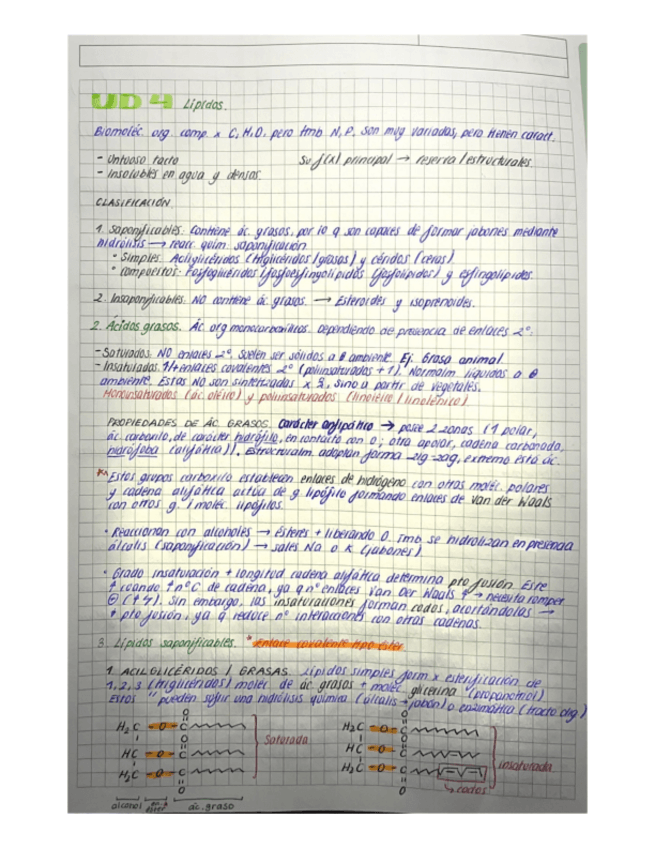 UD 4 Lípidos.
Biomoléc. org. comp. x C, H, O, pero tmb N, P. Son muy variadas, pero tienen caract.
- Untuoso tacto Su f(x) principal → reserva / estructurales.
- Insolubles en agua y densos.
CLASIFICACIÓN
1. Saponificables: Contiene ác. grasos, por lo q son capaces de formar jabones mediante
hidrólisis → reacc. quím. saponificación
• Simples: Acilglicéridos (triglicéridos / grasas) y céridos (ceras).
• Compuestos: Fosfoglicéridos y esfingolípidos.
2. Insaponificables: NO contiene ác. grasos. → Esteroides y isoprenoides.
2. Ácidos grasos. Ác. org monocarboxílicos. Dependiendo de presencia de enlaces 2º:
- Saturados: NO enlaces 2º. Suelen ser sólidos a θ ambiente. Ej. Grasa animal
- Insaturados: 1/+ enlaces covalentes 2º (poliinsaturados + 1). Normalm. líquidos a θ
ambiente. Estas NO son sintetizadas x, sino a partir de vegetales.
Monoinsaturados (ác. oléico) y poliinsaturados (linoléico / linolénico)
PROPIEDADES DE ÁC. GRASOS. Carácter anfipático → posee 2 zonas (1 polar,
ác. carboxilo, de carácter hidrófilo, en contacto con O; otra apolar, cadena carbonada,
hidrófoba (alifática)). Estructuralm. adoptan forma zig-zag, extremo está ác.
Estos grupos carboxilo establecen enlaces de hidrógeno con otras moléc. polares
y cadena alifática actúa de g. lipófilo formando enlaces de Van der Waals
con otros g. / moléc. lipófilos.
• Reaccionan con alcoholes → ésteres + liberando O. Tmb. se hidrolizan en presencia
álcalis (saponificación) → sales Na o K (jabones).
• Grado insaturación + longitud cadena alifática determina pto fusión. Este
↑ cuando ↑ nº C de cadena, ya q nº enlaces Van Der Waals ↑ → necesita romper
Sin embargo, las insaturaciones forman codos, acortándolas →
↓ pto fusión, ya q reduce nº interacciones con otras cadenas.
3. Lípidos saponificables. * Enlace covalente tipo éster
1. ACILGLICÉRIDOS / GRASAS. Lípidos simples form x esterificación de
1, 2, 3 (triglicéridos) moléc. de ác grasos + moléc. glicerina (propanotriol)
Estos pueden sufrir una hidrólisis química (álcalis → jabón) o enzimática (tracto dig)
O O
H₂C - O - C H₂C - O - C
HC - O - C Saturada HC - O - C Insaturada
H₂C - O - C H₂C - O - C
O O ↳ codos
alcohol en. éster ác. graso